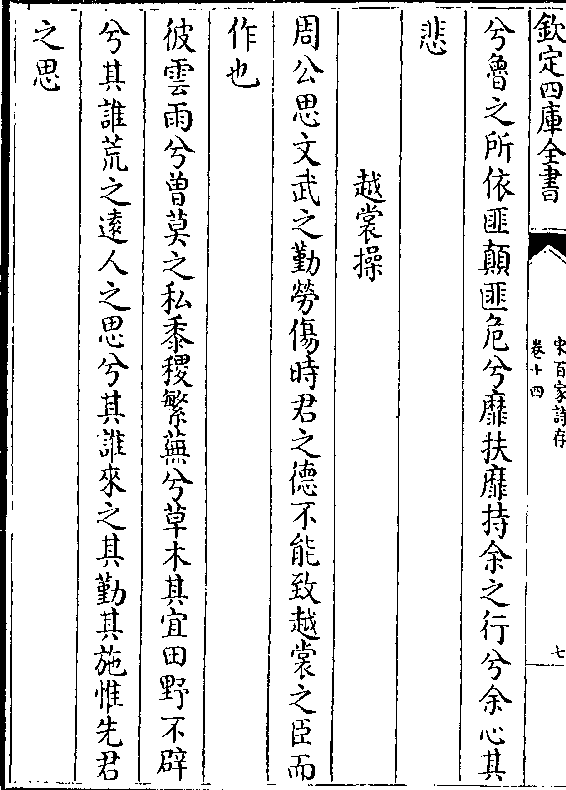 欽定四庫全書
宋百家詩存
卷十四
七
兮魯之所依匪顛匪危兮靡扶靡持余之行兮余心其
悲
越裳操
周公思文武之勤勞傷時君之德不能致越裳之臣而
作也
彼雲雨兮曾莫之私黍稷繁蕪兮草木其宜田野不辟
兮其誰荒之遠人之思兮其誰來之其勤其施惟先君
之思